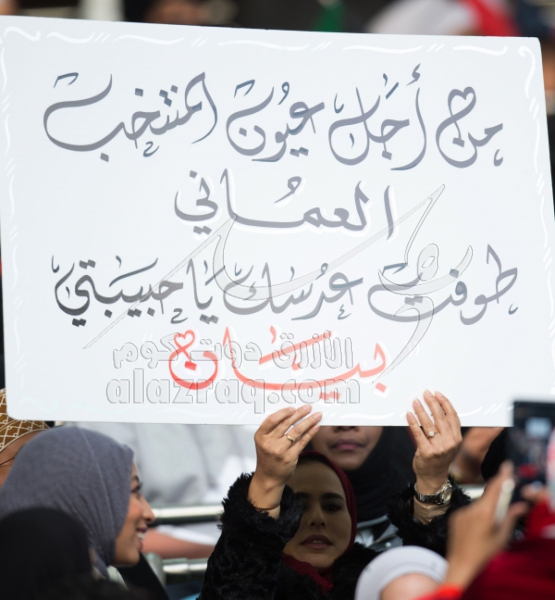 من أجل عيون المنتخب
العماني
طوفت عرسك يا حبيبتي
بيان
الأزرق دوت كوم
alazraq.com